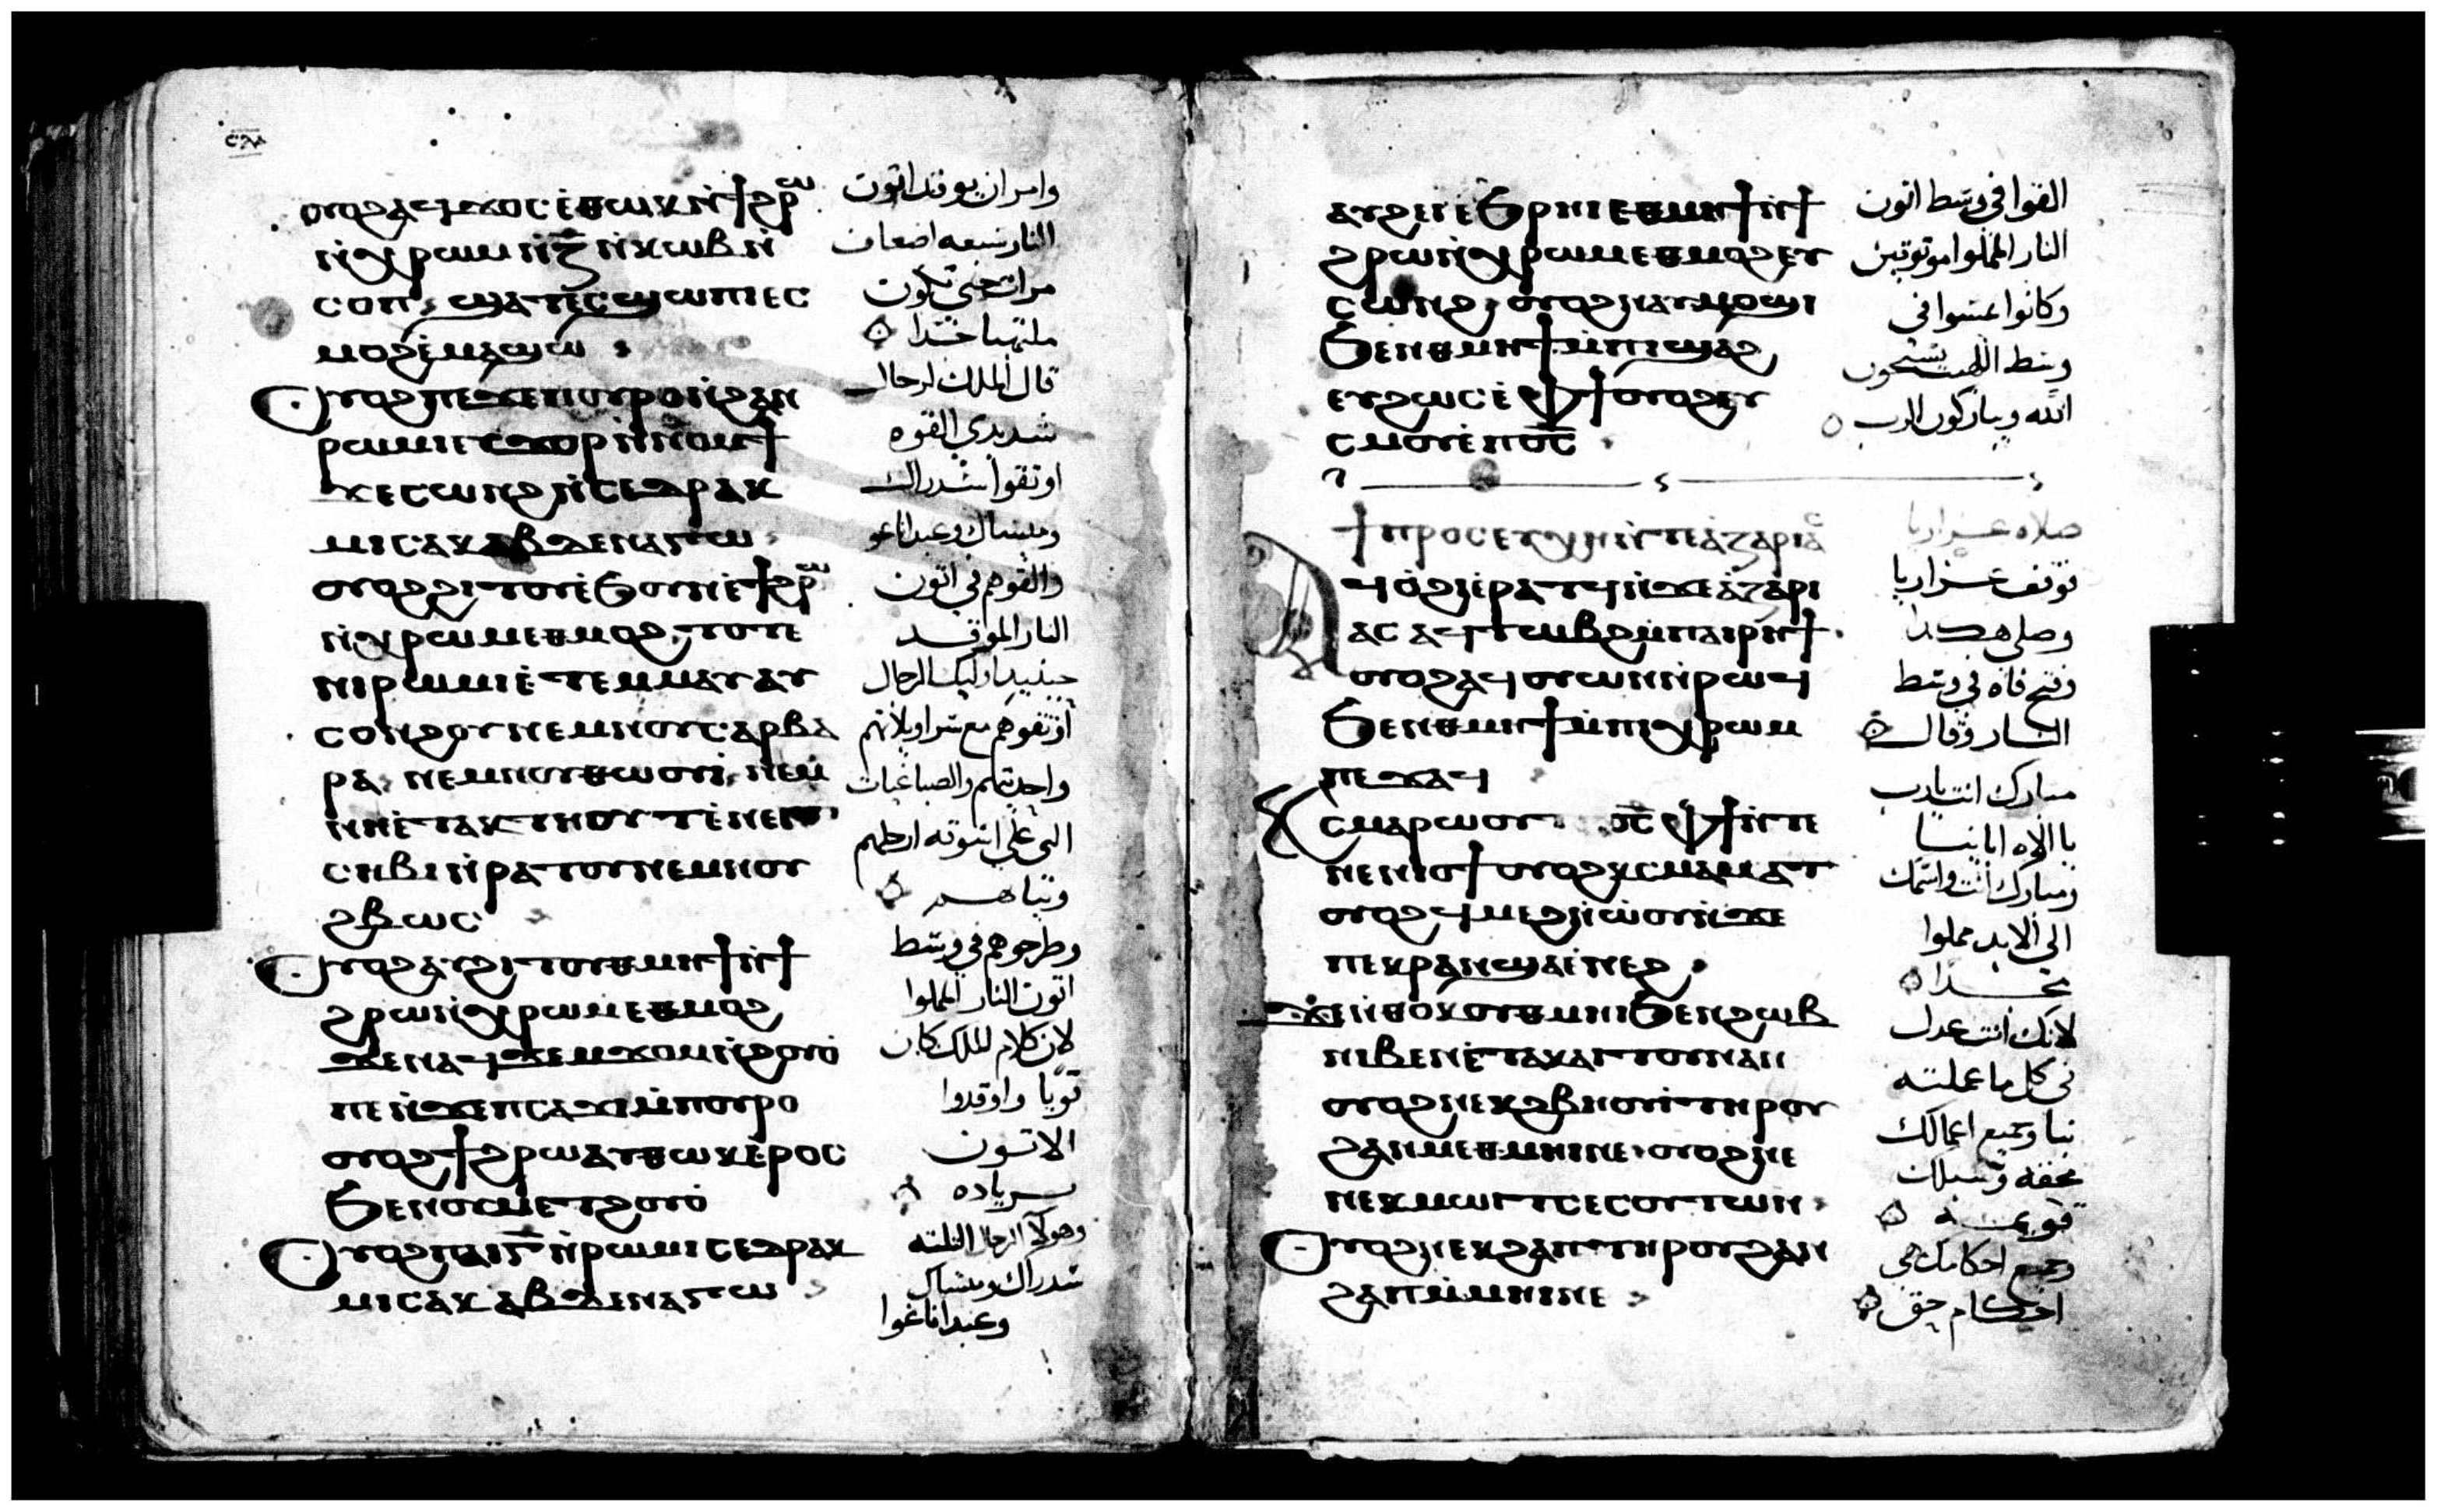 ⲟⲩⲟϩ ⲁϥϫⲟⲥ ⲉ̀ⲑⲱⲕ ⲛ̀ϯϩⲣⲱ
ⲛ̀ⲭⲣⲱⲙ ⲛ̀ⲍ̅ ⲛ̀ⲕⲱⲃ ⲛ̀
ⲥⲟⲡ ϣⲁⲧⲉⲥϣⲱⲡⲓ ⲉⲥ
ⲙⲟϩ ⲉ̀ⲙⲁϣⲱ
ⲟⲩⲟϩ ⲡⲉϫⲉ ⲡⲟⲩⲣⲟ ⲛ̀ϩⲁⲛ
ⲣⲱⲙⲓ ⲉⲩϫⲟⲣ ⲛ̀ⲛⲟⲙϯ
ϫⲉ ⲥⲱⲛϩ ⲛ̀ⲥⲉⲇⲣⲁⲕ
ⲙⲓⲥⲁⲕ ⲁⲃⲇⲉⲛⲁⲅⲱ
ⲟⲩⲟϩ ϩⲓⲧⲟⲩ ⲉ̀ϧⲟⲩⲛ ⲉ̀ϯϩⲣⲱ
ⲛ̀ⲭⲣⲱⲙ ⲉⲑⲙⲟϩ ⲧⲟⲧⲉ
ⲛⲓⲣⲱⲙⲓ ⲉ̀ⲧⲉⲙⲙⲁⲩ ⲁⲩ
ⲥⲟⲛϩⲟⲩ ⲛⲉⲙ ⲛⲟⲩⲥⲁⲣⲃⲁ
ⲣⲁ ⲛⲉⲙ ⲛⲟⲩⲑⲱⲟⲩⲓ̀ ⲛⲉⲙ
ⲥⲏⲃⲓ ⲛ̀ⲣⲁⲧⲟⲩ ⲛⲉⲙ ⲛⲟⲩ
ϩⲃⲱⲥ
ⲟⲩⲟϩ ⲁⲩϩⲓⲧⲟⲩ ⲑⲙⲏϯ ⲛ̀ϯ
ϩⲣⲱ ⲛ̀ⲭⲣⲱⲙ ⲉⲑⲙⲟϩ
ϫⲉ ⲛⲁϥϫⲉⲙϫⲟⲙ ⲛ̀ϩⲟⲩⲟ̀
ⲡⲉ ⲛ̀ϫⲉ ⲡⲥⲁϫⲓ ⲙ̀ⲡⲟⲩⲣⲟ
ⲟⲩⲟϩ ϯϩⲣⲱ ⲁⲩⲑⲱⲕ ⲉ̀ⲣⲟⲥ
ϧⲉⲛ ⲟⲩⲙⲉⲧϩⲟⲩⲟ̀
ⲟⲩⲟϩ ⲡⲁⲓⲅ̅ ⲛ̀ⲣⲱⲙⲓ ⲥⲉⲇⲣⲁⲕ
ⲙⲓⲥⲁⲕ ⲁⲃⲇⲉⲛⲁⲅⲱ
وامر ان يوقد اتون
النار سبعه اضعاف
مرات حتى تكون
ملتهبا جدا
قال الملك لرجال
شديدي القوه
اوثقوا شدراك
وميساك وعبداناغو
والقوهم في اتون
النار الموقد
حينيد اوليك الرجال
أوثقوهم مع سراويلاتهم
وثيابهم
وطرحوهم في وسط
اتون النار المملوا
لان كلام الملك كان
قويا واوقدوا
الاتون
بزياده
وهولا الرجال الثلثه
شدراك وميساك
وعبداناغوا
ⲁⲩϩⲉⲓ ⲉ̀ϧⲣⲏⲓ ⲉⲑⲙⲏϯ ⲛ̀ϯ
ϩⲣⲱ ⲛ̀ⲭⲣⲱⲙ ⲉⲑⲙⲟϩ ⲉⲩ
ⲥⲱⲛϩ ⲟⲩⲟϩ ⲛⲁⲩⲙⲟϣⲓ
ϧⲉⲛ ⲑⲙⲏϯ ⲙ̀ⲡⲓϣⲁϩ
ⲉⲩϩⲱⲥ ⲉ̀ⲫϯ ⲟⲩⲟϩ ⲉⲩ
ⲥⲙⲟⲩ ⲉ̀ⲡⲟ̅ⲥ̅
ϯⲡⲣⲟⲥⲉⲩⲭⲏ ⲛ̀ⲧⲉ ⲁ̀ⲍⲁⲣⲓⲁⲥ
ⲁϥⲟ̀ϩⲓ ⲉ̀ⲣⲁⲧϥ ⲛ̀ϫⲉ ⲁ̀ⲍⲁⲣⲓ
ⲁⲥ ⲁϥⲧⲱⲃϩ ⲙ̀ⲡⲁⲓⲣⲏϯ
ⲟⲩⲟϩ ⲁϥⲟⲩⲱⲛ ⲛ̀ⲣⲱϥ
ϧⲉⲛ ⲑⲙⲏϯ ⲙ̀ⲡⲓⲭⲣⲱⲙ
ⲡⲉϫⲁϥ
ⲕⲥⲙⲁⲣⲱⲟⲩⲧ ⲡⲟ̅ⲥ̅ ⲫϯ ⲛ̀ⲧⲉ
ⲛⲉⲛⲓⲟϯ ⲟⲩⲟϩ ⲕⲥⲙⲁⲙⲁⲧ
ⲟⲩⲟϩ ϥⲙⲉϩ ⲛ̀ⲱ̀ⲟⲩ ⲛ̀ϫⲉ
ⲡⲉⲕⲣⲁⲛ ϣⲁ ⲉ̀ⲛⲉϩ
ϫⲉ ⲛ̀ⲑⲟⲕ ⲟⲩⲑⲙⲏⲓ ϧⲉⲛ ϩⲱⲃ
ⲛⲓⲃⲉⲛ ⲉ̀ⲧⲁⲕⲁⲓⲧⲟⲩ ⲛⲁⲛ
ⲟⲩⲟϩ ⲛⲉⲕϩⲃⲏⲟⲩⲓ̀ ⲧⲏⲣⲟⲩ
ϩⲁⲛⲙⲉⲑⲙⲏⲓ ⲛⲉ ⲟⲩⲟϩ ⲛⲉ
ⲛⲉⲕⲙⲱⲓⲧ ⲥⲉⲥⲟⲩⲧⲱⲛ
ⲟⲩⲟϩ ⲛⲉⲕϩⲁⲡ ⲧⲏⲣⲟⲩ ϩⲁⲛ
ϩⲁⲡ ⲙ̀ⲙⲏⲓ ⲛⲉ
القوا في وسط اتون
النار المملوا موثوقين
وكانوا يمشوا في
وسط اللهيب يسبحون
الله ويباركون الرب
صلاه عزاريا
توقف عزاريا
وصلى هكذا
وفتح فاه في وسط
النار وقال
مبارك انت يارب
يا الاه ابائنا
ومبارك أنت واسمك
الى الابد مملوا
مجدا
لانك أنت عدل
في كل ما عملته
بنا وجميع اعمالك
بحقه وسبلك
قويمه
وجميع احكامك هي
احكام حق